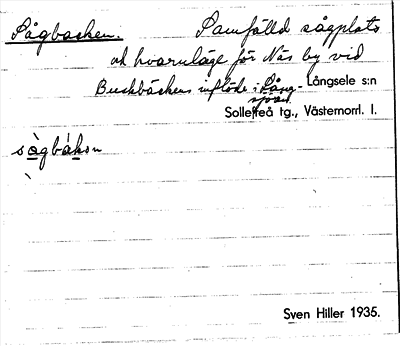 Sågbacken. Samfälld sågplats
och kvarnläge för Näs by vid
Buskbäckens inflöde i Lång- Långsele s:n
sjön.
Sollefteå tg., Västernorrl. l.
sågbákɔn
Sven Hiller 1935.